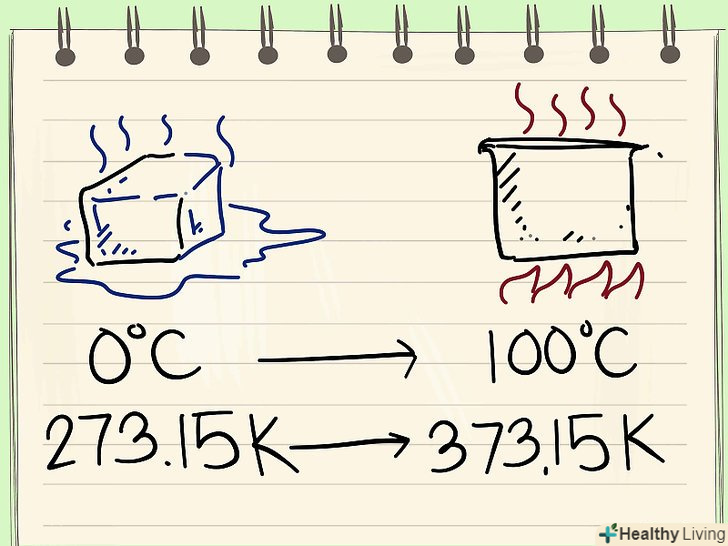 0°C → 100°C
273.15K → 373.15K
Healthy Living